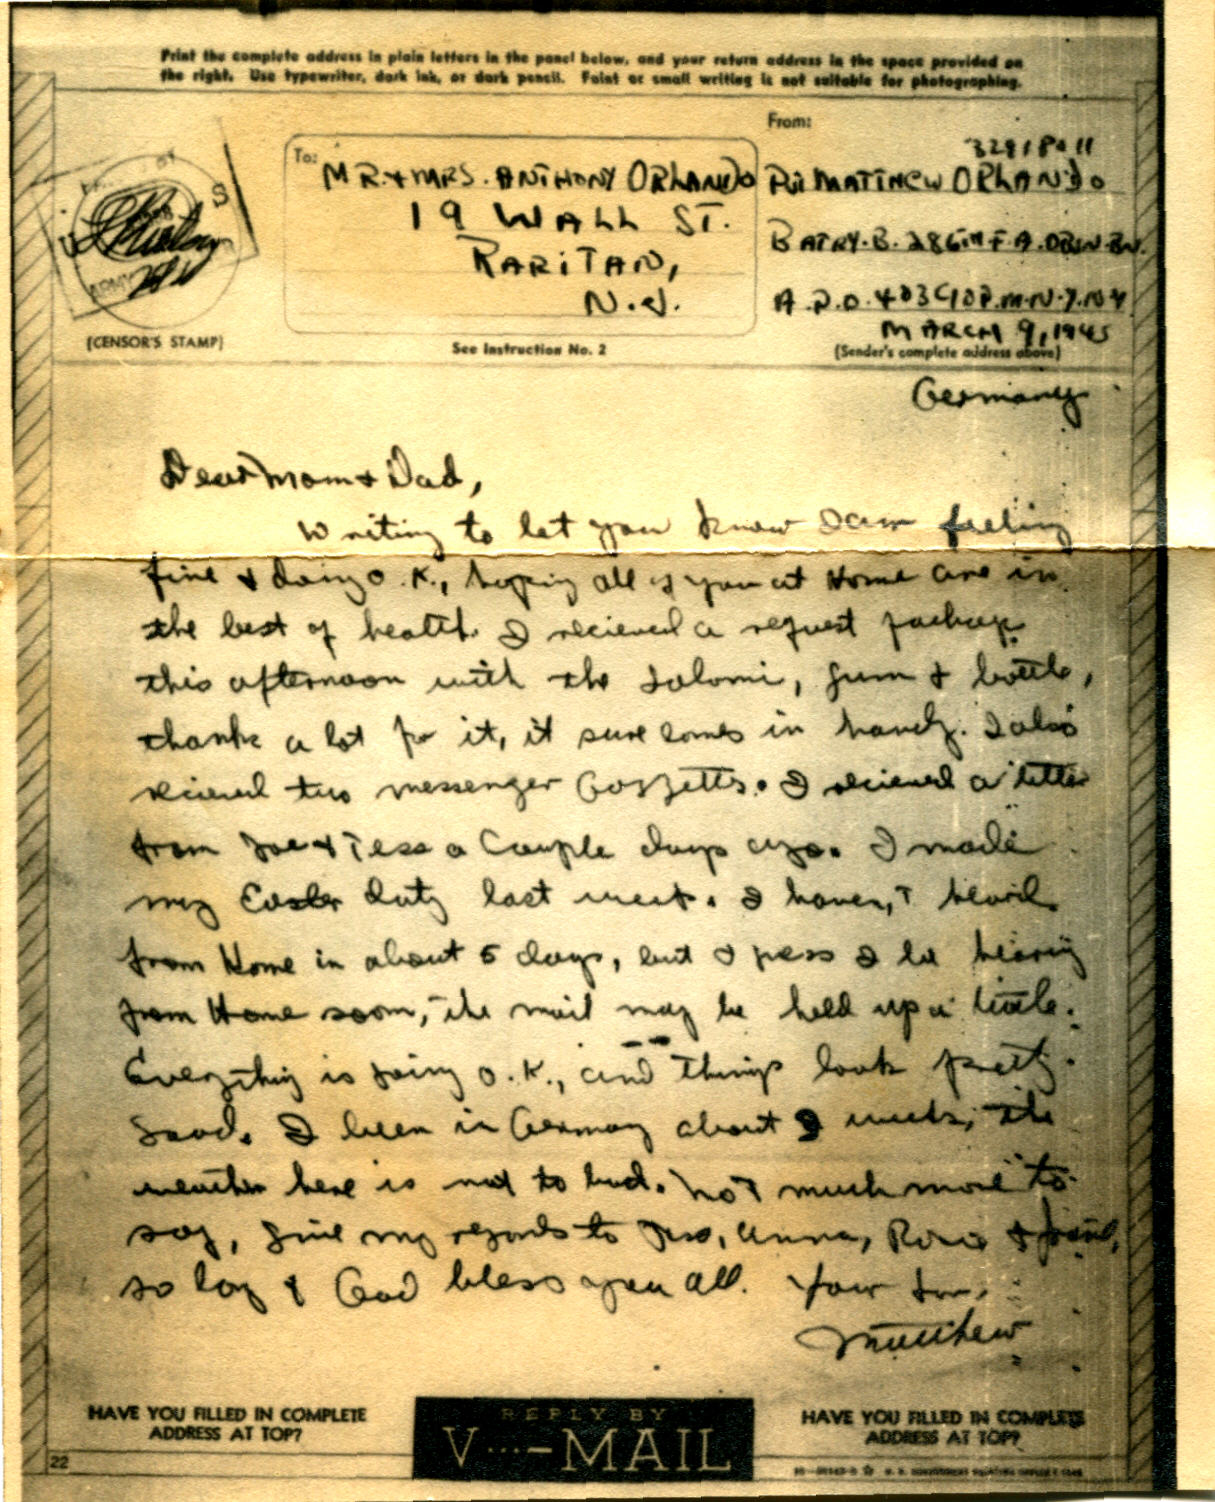 Print the complete address in plain letters in the panel below, and your return address in the space provided on
the right. Use typewriter, dark ink, or dark pencil. Faint or small writing is not suitable for photographing.
From:
To:
MR. + MRS. ANTHONY ORLANDO
19 WALL ST.
RARITAN,
N.J.
32918011
MATTHEW ORLANDO
BATRY. B. 286TH F.A. OBSN. BN.
A.P.O. 403 C/O P.M. N.Y. N.Y
MARCH 9, 1945
(CENSOR'S STAMP)
See Instruction No. 2
(Sender's complete address above)
Germany
Dear Mom + Dad,
Writing to let you know I am feeling
fine + doing O.K., hoping all of you at Home are in
the best of health. I recieved a request package
this afternoon with the salomi, gum + bottle,
thanks a lot for it, it sure comes in handy. I also
recieved two messenger Gazzetts. I recieved a letter
from Joe + Tess a couple days ago. I made
my Easter duty last week. I haven't heard
from Home in about 5 days, but I gess I be hearing
from Home soon, the mail may be held up a little.
Everything is going O.K., and things look pretty
good. I been in Germany about weeks, the
weather here is not to bad. Not much more to
say, give my regards to Anna, Rosie +
so long & God bless you all. Your Son,
Matthew
HAVE YOU FILLED IN COMPLETE
ADDRESS AT TOP?
REPLY BY
V···—MAIL
HAVE YOU FILLED IN COMPLETE
ADDRESS AT TOP?
22